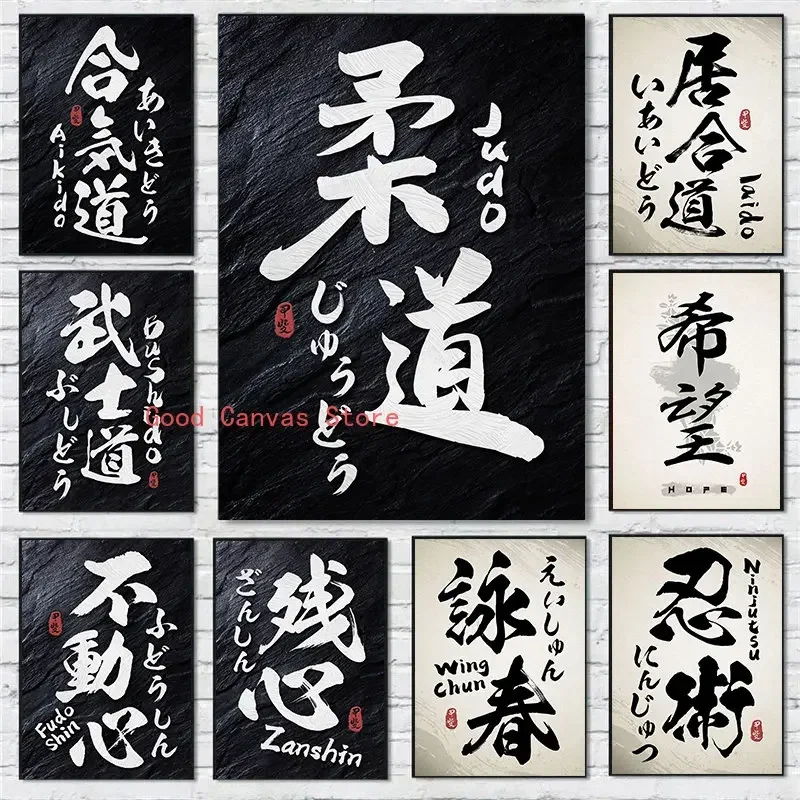 合気道
あいきどう
Aikido
柔道
Judo
じゅうどう
居合道
いあいどう
Iaido
武士道
ぶしどう
Bushido
希望
HOPE
Good Canvas Store
不動心
ふどうしん
Fudo
Shin
残心
ざんしん
Zanshin
詠春
えいしゅん
Wing
Chun
忍術
Ninjutsu
にんじゅつ